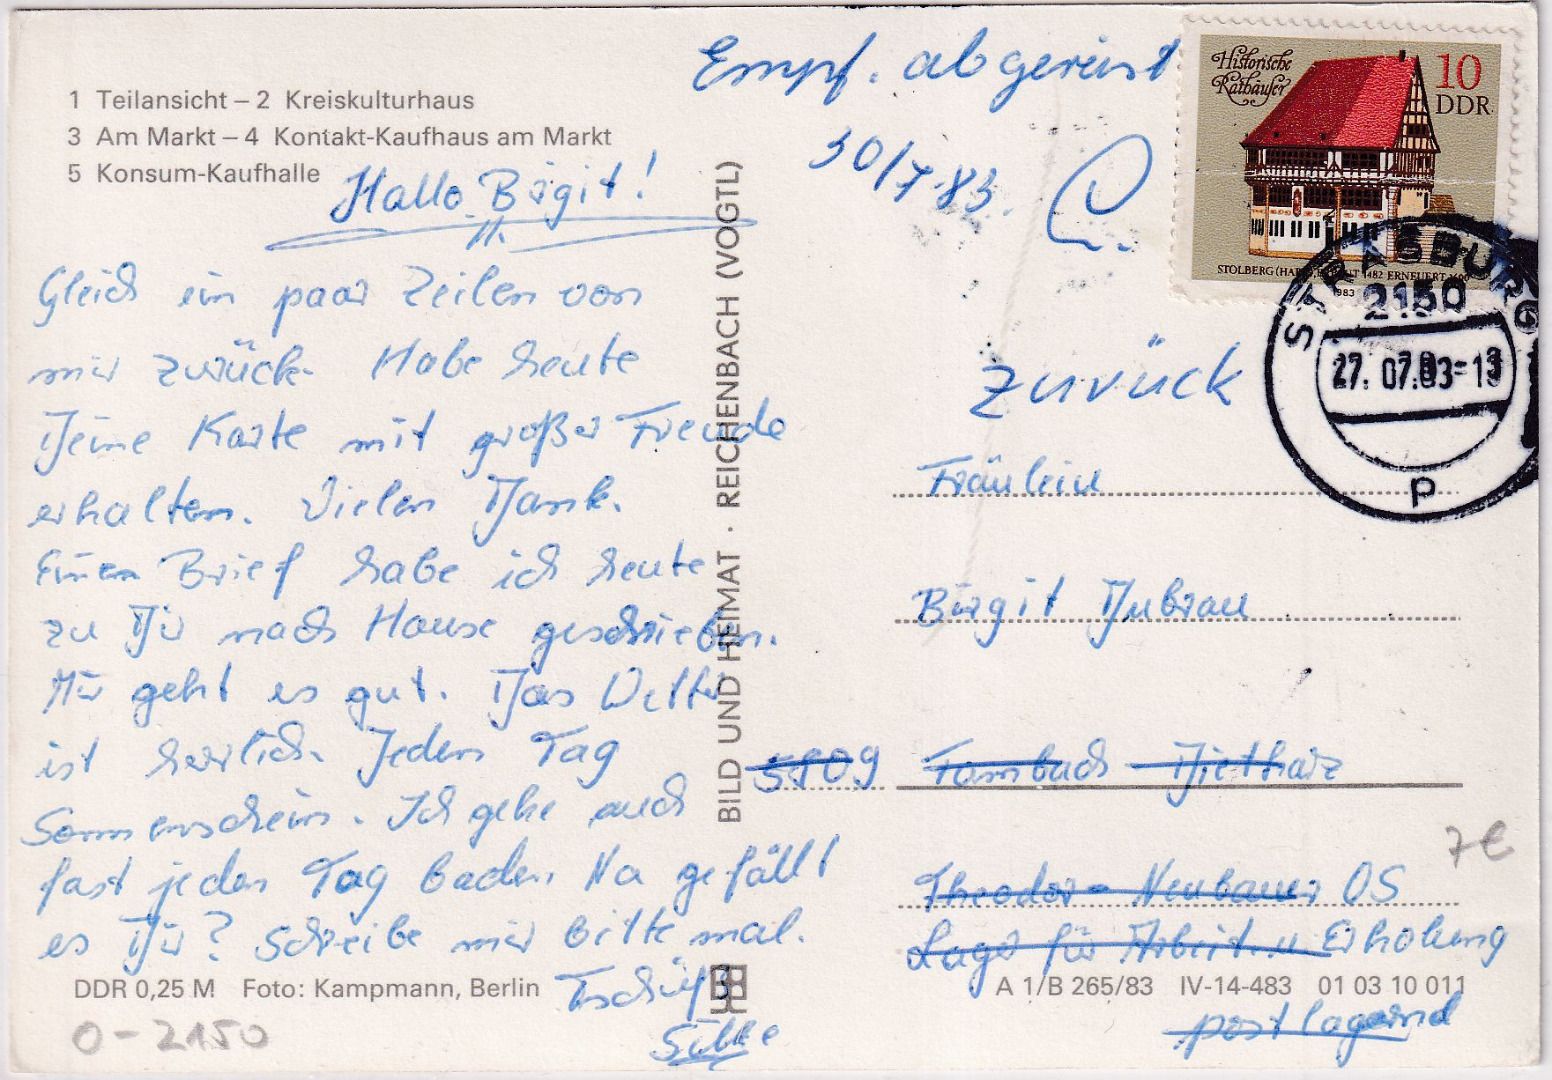 1 Teilansicht – 2 Kreiskulturhaus
3 Am Markt – 4 Kontakt-Kaufhaus am Markt
5 Konsum-Kaufhalle
Hallo Birgit!
Gleich ein paar Zeilen von
mir zurück. Habe heute
Deine Karte mit großer Freude
erhalten. Vielen Dank.
Einen Brief habe ich heute
zu Dir nach Hause geschrieben.
Mir geht es gut. Das Wetter
ist herrlich. Jeden Tag
Sonnenschein. Ich gehe auch
fast jeden Tag baden. Na gefällt
es Dir? Schreibe mir bitte mal.
Tschüß
Silke
DDR 0,25 M Foto: Kampmann, Berlin
O-2150
BILD UND HEIMAT · REICHENBACH (VOGTL)
Empf. abgereist
30/7.83.
Historische
Rathäuser
10
DDR
STOLBERG (HARZ), ERBAUT 1482 ERNEUERT 1600
1983
STRASBURG
2150
27.07.83-13
P
Zurück
Fräulein
Birgit Dubrau
5809 Tambach - Dietharz
Theodor-Neubauer OS
Lager für Arbeit u Erholung
A 1/B 265/83 IV-14-483 01 03 10 011
postlagernd
7€